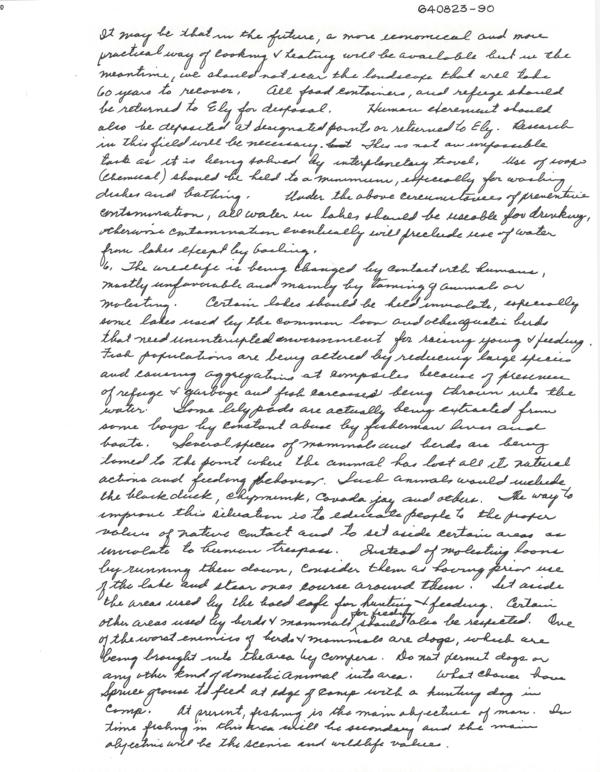 640823-90
It may be that in the future, a more economical and more
practical way of cooking & heating will be available but in the
meantime, we should not scar the landscape that will take
60 years to recover. All food containers, and refuge should
be returned to Ely for disposal. Human excrement should
also be deposited at designated points or returned to Ely. Research
in this field will be necessary. This is not an impossible
task as it is being solved by interplanetary travel. Use of soaps
(chemical) should be held to a minimum, especially for washing
dishes and bathing. Under the above circumstances of preventive
contamination, all water in lakes should be useable for drinking,
otherwise contamination eventually will preclude use of water
from lakes except by boiling.
6. The wildlife is being changed by contact with humans,
mostly unfavorable and mainly by taming of animals or
molesting. Certain lakes should be held inviolate, especially
some lakes used by the common loon and other aquatic birds
that need uninterrupted environment for raising young & feeding.
Fish populations are being altered by reducing large species
and causing aggregations at campsites because of presence
of refuge & garbage and fish carcasses being thrown into the
water. Some lily pads are actually being extracted from
some bays by constant abuse by fisherman lines and
boats. Several species of mammals and birds are being
tamed to the point where the animal has lost all its natural
actions and feeding behavior. Such animals would include
the black duck, chipmunk, Canada jay and others. The way to
improve this situation is to educate people to the proper
values of native contact and to set aside certain areas as
inviolate to human trespass. Instead of molesting loons
by running them down, consider them as having prior use
of the lake and steer ones course around them. Set aside
the areas used by the bald eagle for hunting & feeding. Certain
other areas used by birds & mammals for feeding should also be respected. One
of the worst enemies of birds & mammals are dogs, which are
being brought into the area by campers. Do not permit dogs or
any other kind of domestic animal into area. What chance have
Spruce grouse to feed at edge of camp with a hunting dog in
camp. At present, fishing is the main objective of man. In
time fishing in this area will be secondary and the main
objective will be the scenic and wildlife values.